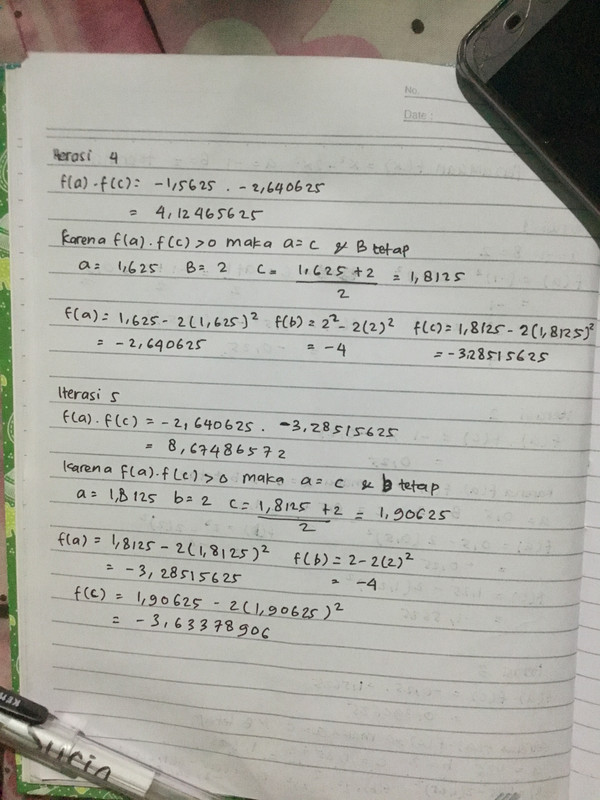 No.
Date :
Iterasi 4
f(a) . f(c) = -1,5625 . -2,640625
= 4,12465625
Karena f(a) . f(c) > 0 maka a = c & B tetap
a = 1,625 B = 2 C = 1,625 + 2 / 2 = 1,8125
f(a) = 1,625 - 2(1,625)² f(b) = 2² - 2(2)² f(c) = 1,8125 - 2(1,8125)²
= -2,640625 = -4 = -3,28515625
Iterasi 5
f(a) . f(c) = -2,640625 . -3,28515625
= 8,67486572
Karena f(a) . f(c) > 0 maka a = c & b tetap
a = 1,8125 b = 2 c = 1,8125 + 2 / 2 = 1,90625
f(a) = 1,8125 - 2(1,8125)² f(b) = 2 - 2(2)²
= -3,28515625 = -4
f(c) = 1,90625 - 2(1,90625)²
= -3,63378906